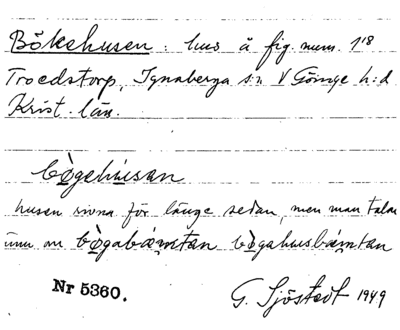 Bökshusen : hus å fig. num. 1¹⁸
Troedstorp, Ignaberga sn V Göinge h:d
Krist. län.
bògehúsan
husen rivna för länge sedan, men man talar
ännu om bògabǽntan bògahusbǽntan
Nr 5360.
G. Sjöstedt 1949